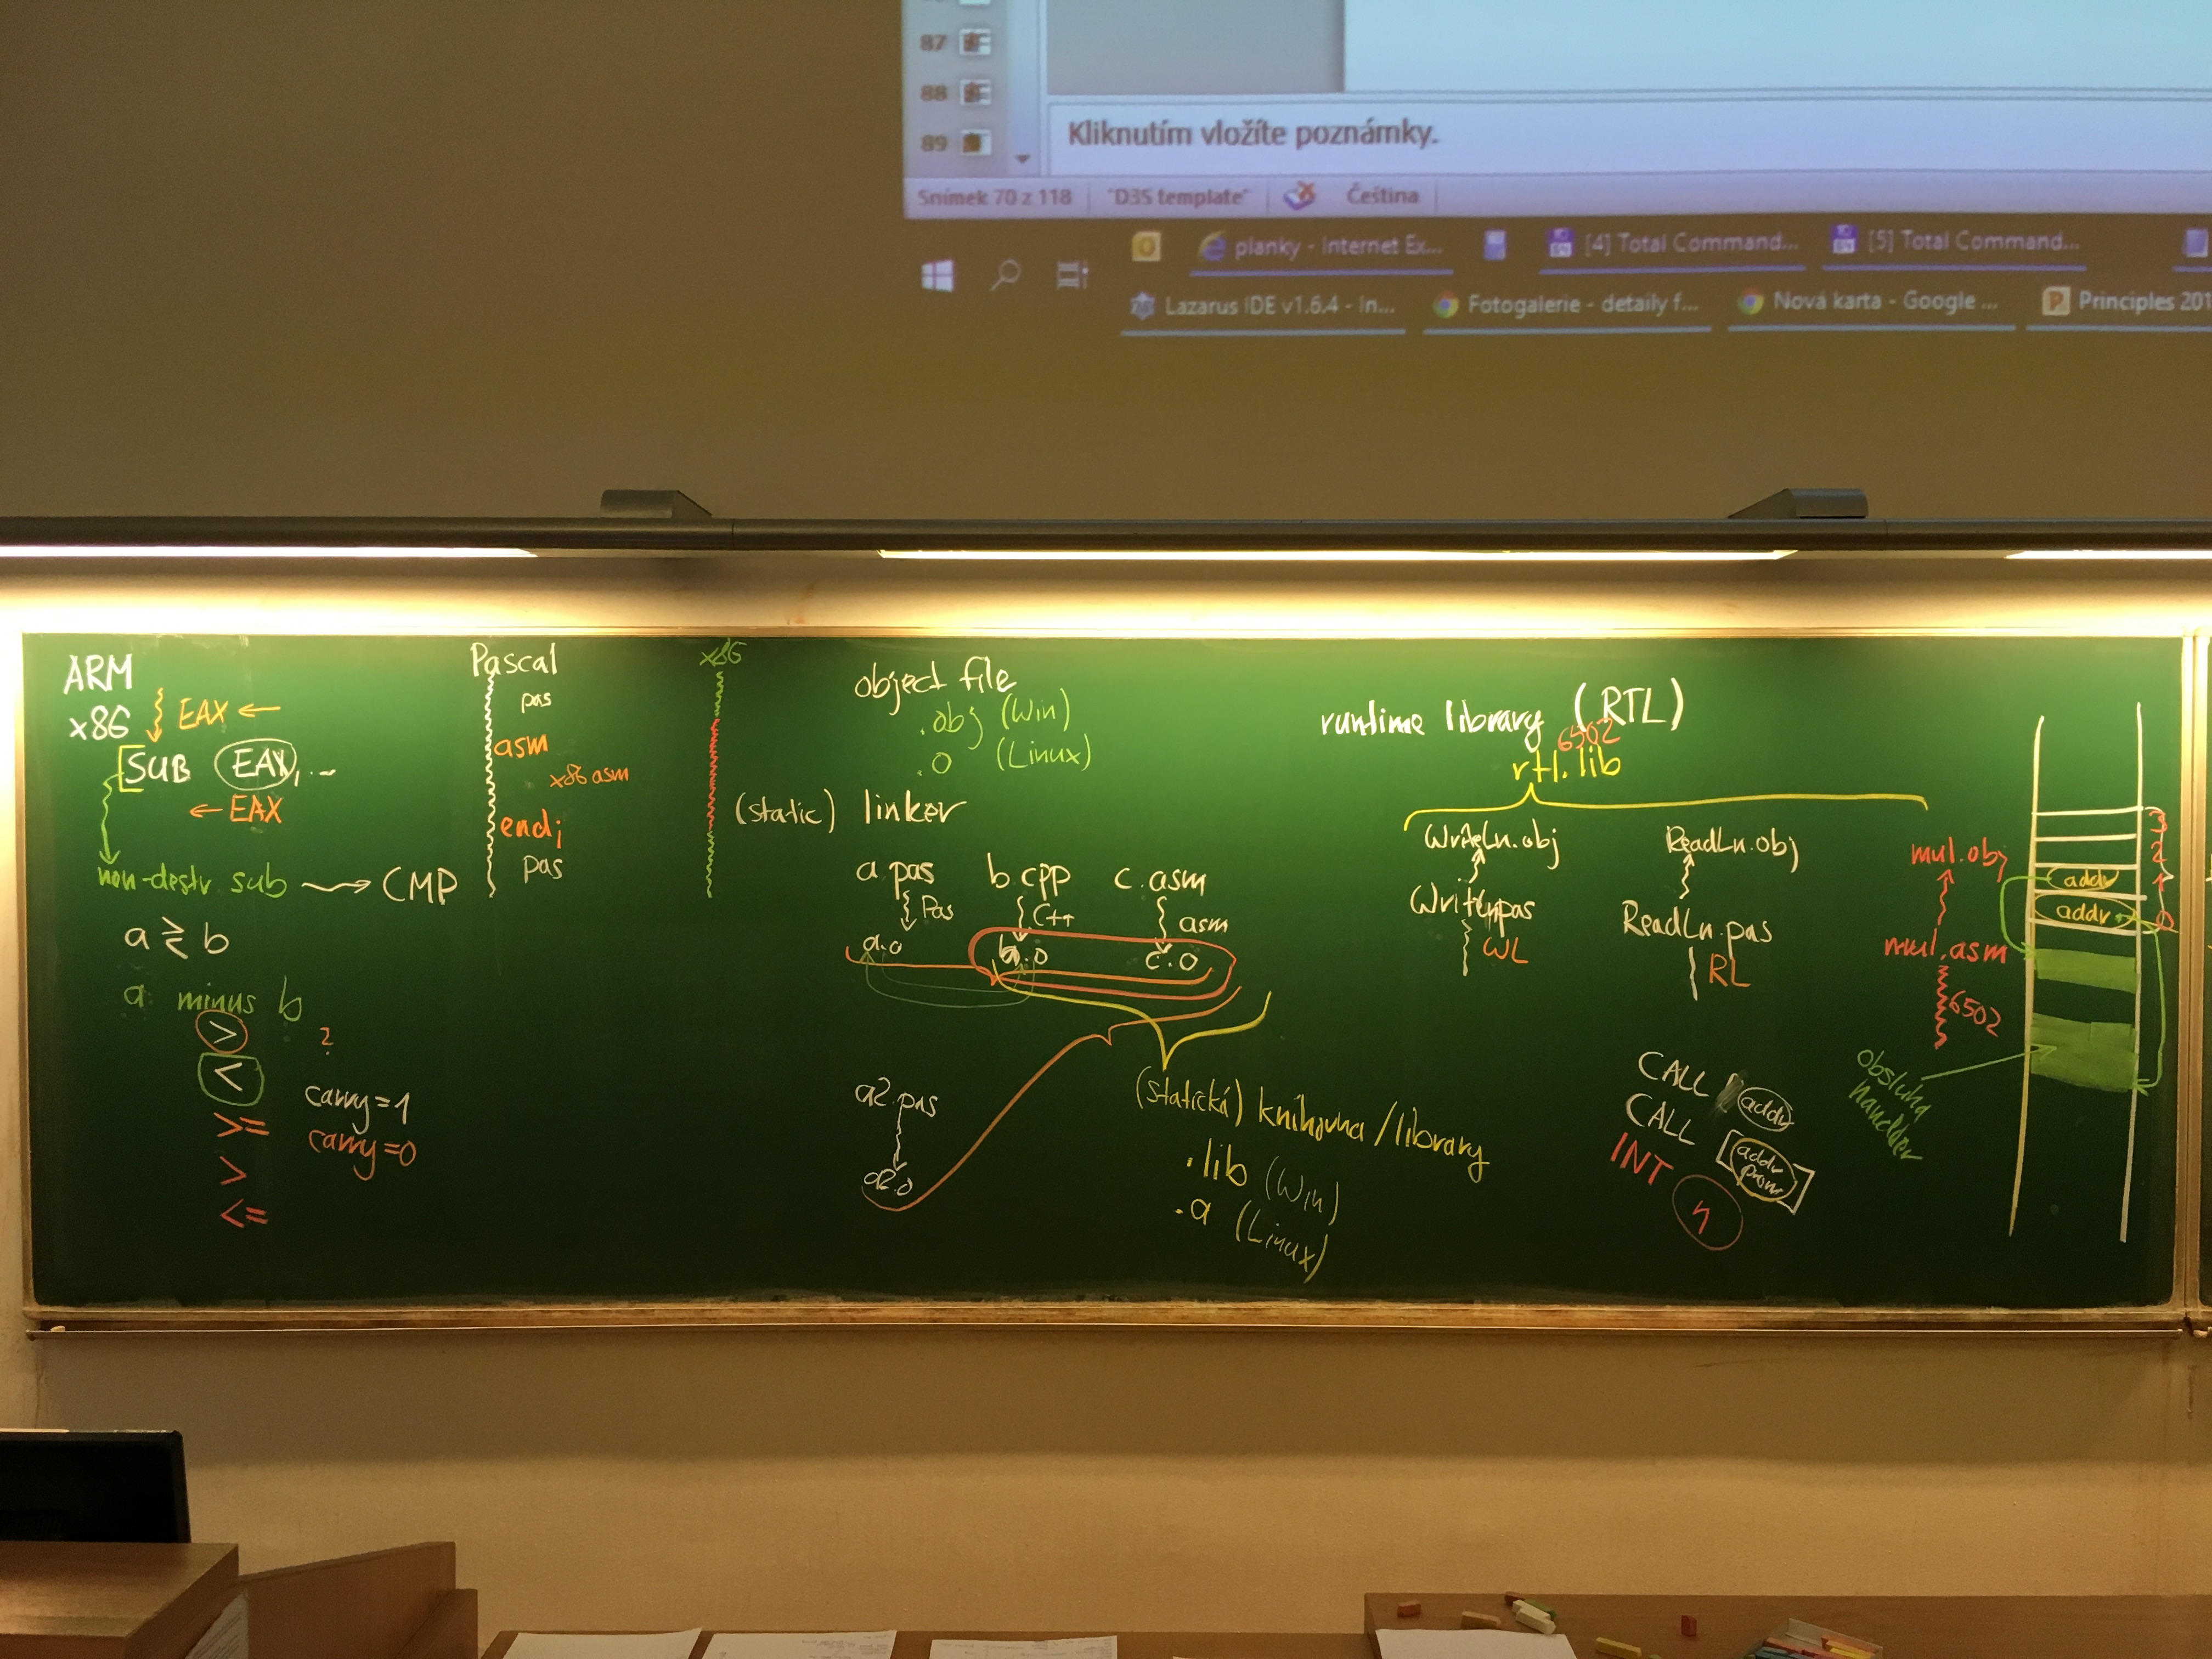 87
88
89
Kliknutím vložíte poznámky.
Snímek 70 z 118 "D3S template" Čeština
planky - Internet Ex... [4] Total Command... [5] Total Command...
Lazarus IDE v1.6.4 - In... Fotogalerie - detaily f... Nová karta - Google ... Principles 201
ARM
x86 EAX ←
SUB EAX, ...
← EAX
non-destr. sub → CMP
a ≷ b
a minus b
> ?
<
carry=1
>= carry=0
>
<=
Pascal
pas
asm
x86 asm
end;
pas
x86
object file
.obj (Win)
.o (Linux)
(static) linker
a.pas b.cpp c.asm
Pas C++ asm
a.o b.o c.o
a2.pas
a2.o
(statická) knihovna/library
.lib (Win)
.a (Linux)
runtime library (RTL)
6502
rtl.lib
WriteLn.obj ReadLn.obj mul.obj
Writeln.pas ReadLn.pas mul.asm
WL RL 6502
CALL addr
CALL addr
prom
INT n
3
2
addr
addr 0
obsluha
handler